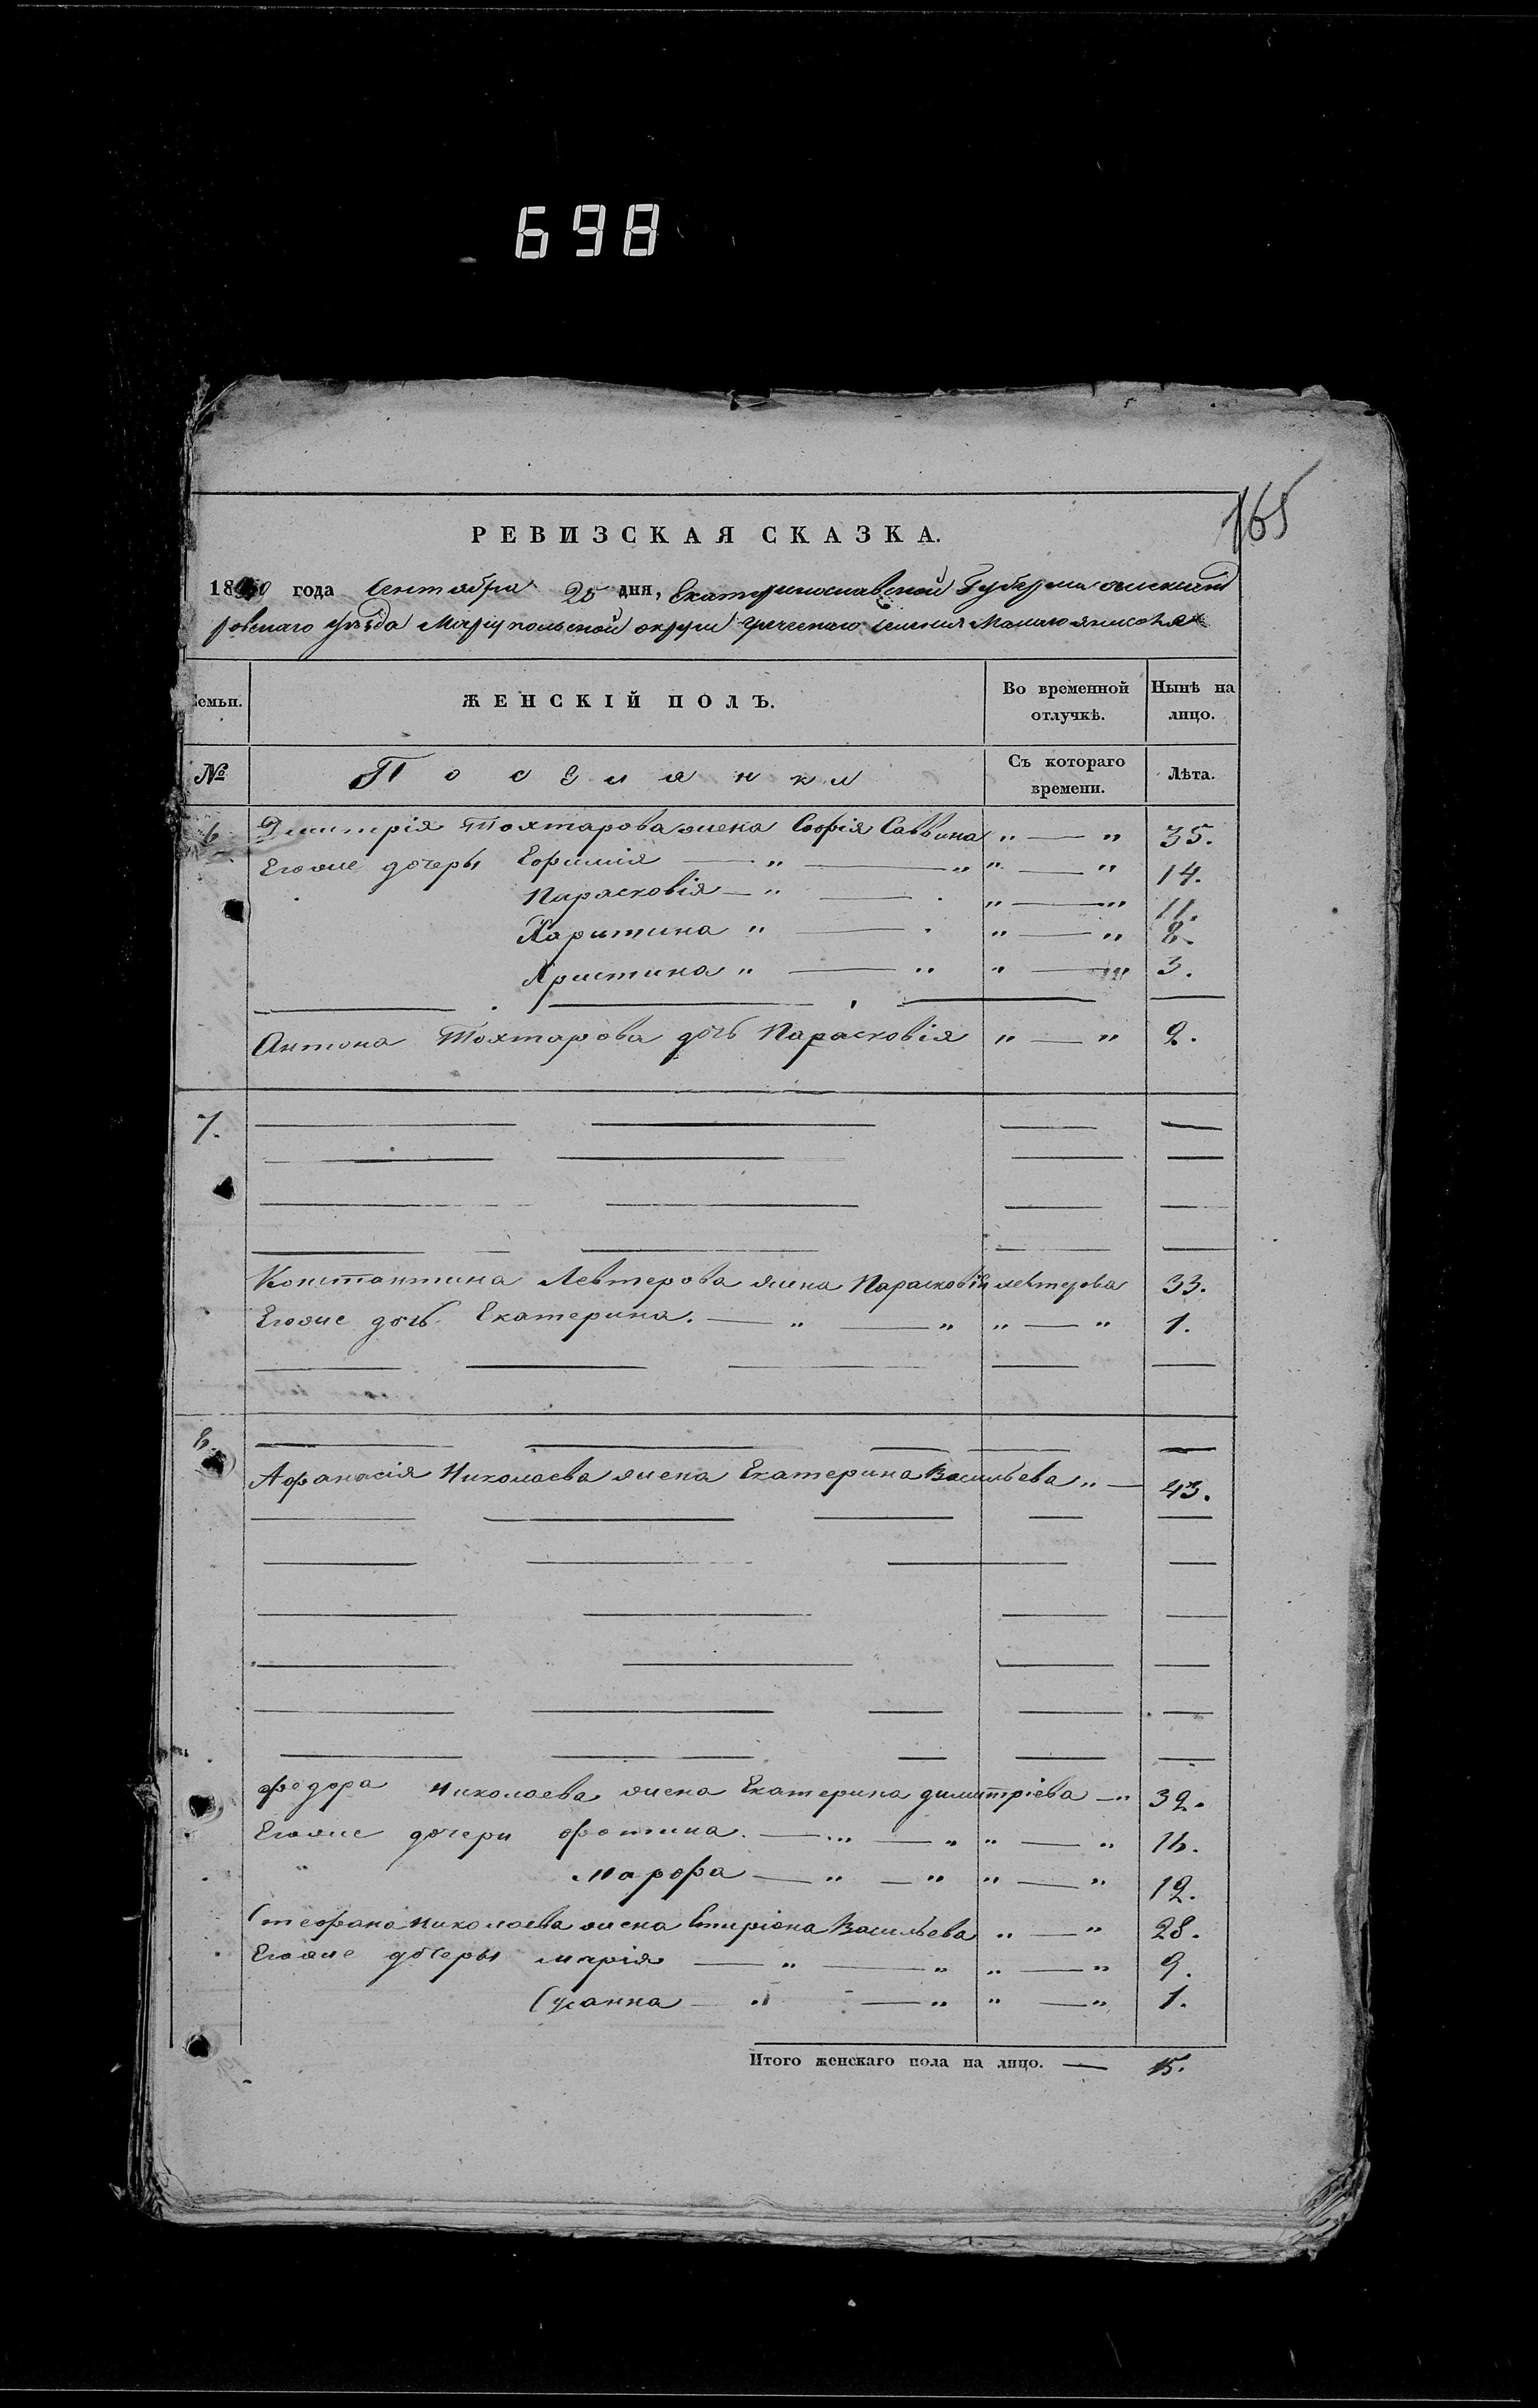 698
165
РЕВИЗСКАЯ СКАЗКА.
1850 года Сентября 25 дня, Екатеринославской Губернии Александ
ровскаго уѣзда Мариупольской округи Греческаго селения Малаго Янисоля
Семьи. ЖЕНСКІЙ ПОЛЪ. Во временной отлучкѣ. Нынѣ на лицо.
№ Поселянки Съ котораго времени. Лѣта.
6 Дмитрія Тохтарова жена Софія Саввина „ — „ 35.
Егоже дочеры Ефимія — „ — „ „ — „ 14.
Парасковія — „ — „ — „ 11.
Харитина „ — „ — „ 8.
Христина „ — „ „ — „ 3.
Антона Тохтарова дочь Парасковія „ — „ 2.
7.
Константина Левтерова жена Парасковія левтерова 33.
Егоже дочь Екатерина. — „ — „ „ — „ 1.
8.
Афанасія Николаева жена Екатерина Васильева „ — 43.
Федора Николаева жена Екатерина димитріева — „ 32.
Егоже дочери фотина. — „ — „ „ — „ 16.
Марфа — „ — „ „ — „ 12.
Стефана Николаева жена Васильева „ — „ 28.
Егоже дочеры марія — „ — „ „ — „ 9.
Сусанна — „ — „ „ — „ 1.
Итого женскаго пола на лицо. — 15.